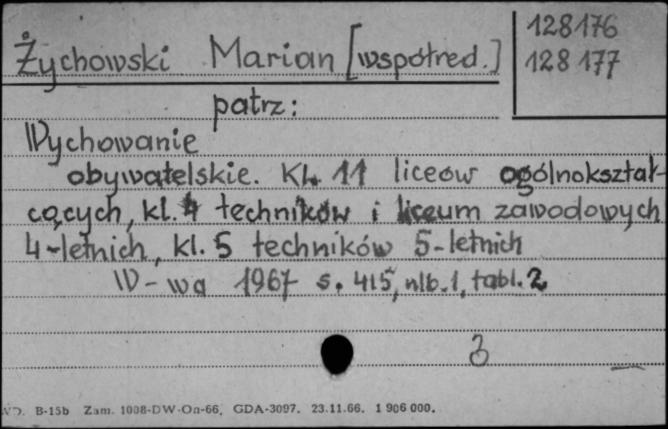 Żychowski Marian [współred.]
128176
128177
patrz:
Wychowanie
obywatelskie. Kl. 11 liceów ogólnokształ-
cących, kl. 4 techników i liceum zawodowych
4-letnich, kl. 5 techników 5-letnich
W-wa 1967 s. 415, nlb. 1, tabl. 2
3
B-15b Zam. 1008-DW-Oa-66, GDA-3097. 23.11.66. 1 906 000.